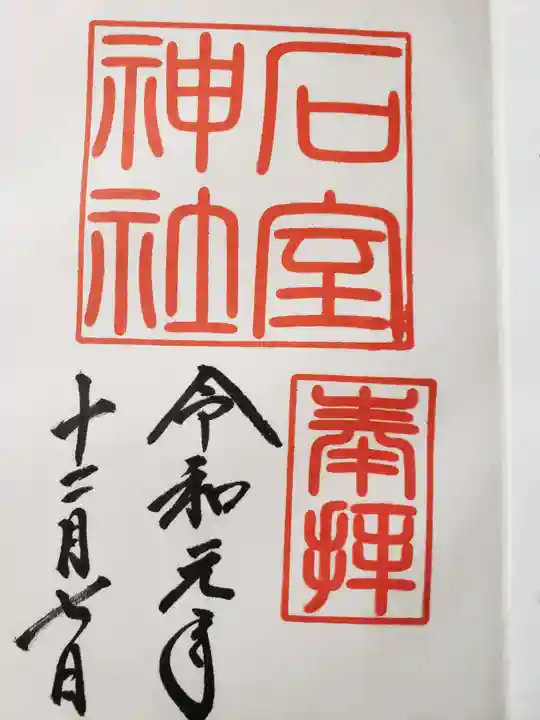 石室
神社
奉拝
令和元年
十二月七日